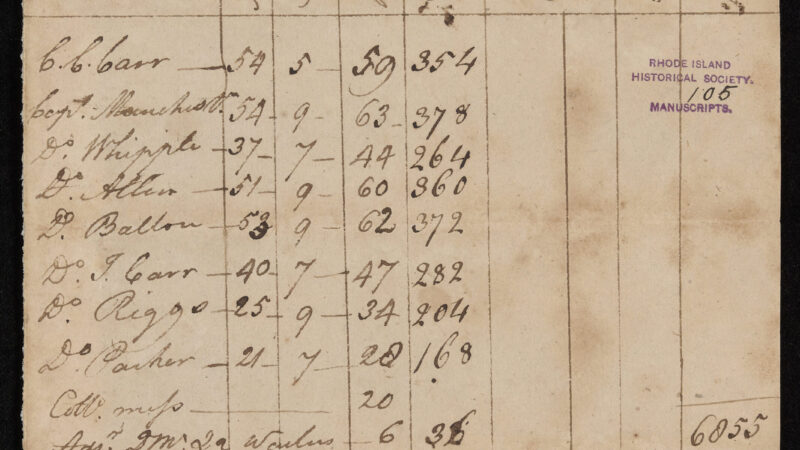 C. C. Carr — 54 5 — 59 354
RHODE ISLAND
HISTORICAL SOCIETY.
105
MANUSCRIPTS.
Capt. Manchestr 54 — 9 — 63 — 378
Do. Whipple — 37 — 7 — 44 264
Do. Allen — 51 — 9 — 60 360
Do. Ballou — 53 9 — 62 372
Do. J. Carr — 40 — 7 — 47 282
Do. Riggs — 25 — 9 — 34 204
Do. Parker — 21 — 7 — 28 168
20
6 36
6855